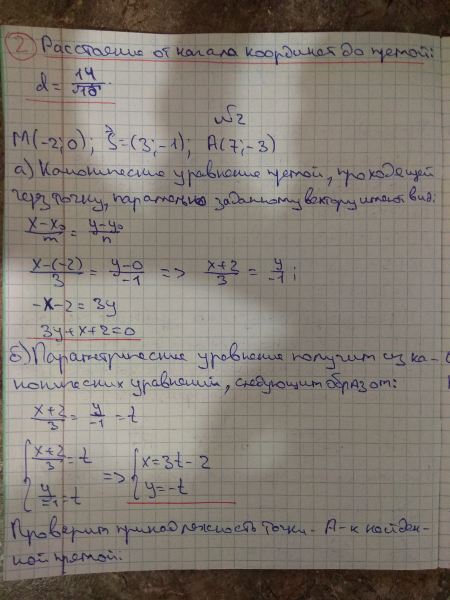 2 Расстояние от начала координат до прямой:
d = 14/√10.
№2
M(-2; 0); S⃗=(3; -1); A(7; -3)
а) Каноническое уравнение прямой, проходящей
через точку, параллельно заданному вектору имеют вид:
x-x₀/m = y-y₀/n
x-(-2)/3 = y-0/-1 => x+2/3 = y/-1;
-x-2 = 3y
3y+x+2=0
б) Параметрические уравнение получим из ка-
нонических уравнений, следующим образом:
x+2/3 = y/-1 = t
{ x+2/3 = t => { x=3t-2
y/-1 = t y=-t
Проверим принадлежность точки - A - к найден-
ной прямой: